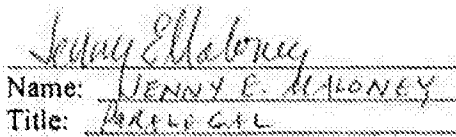 Jenny E Maloney
Name: JENNY E. MALONEY
Title: PARALEGAL